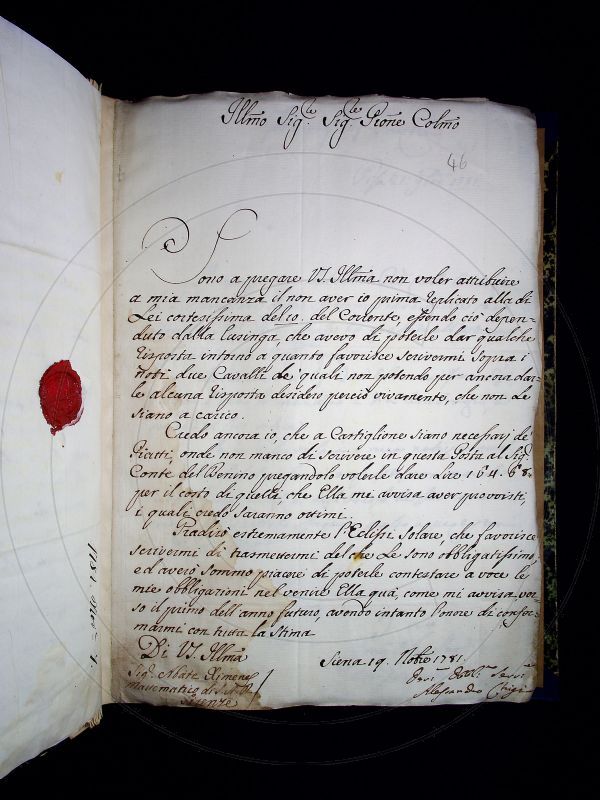 Illmo Sigre Sigre Prone Colmo
46
Sono a pregare VS. Illma non voler attribuire
a mia mancanza il non aver io prima replicato alla di
Lei cortesissima del 10. del Corrente, essendo ciò depen-
duto dalla lusinga, che avevo di poterle dar qualche
risposta intorno a quanto favorisce scrivermi sopra i
noti due Cavalli de' quali non potendo per ancora dar-
le alcuna risposta desidero perciò vivamente, che non le
siano a carico.
Credo ancora io, che a Castiglione siano necessarj de'
onde non manco di scrivere in questa Posta al Sigre
Conte del Benino pregandolo volerle dare lire 164. 6. 8.
per il costo di quelli, che Ella mi avvisa aver provvisti,
i quali credo saranno ottimi.
Gradirò estremamente l'Eclissi solare, che favorisce
scrivermi di trasmettermi del che Le sono obbligatissimo,
ed averò sommo piacere di poterle contestare a voce le
mie obbligazioni nel venire Ella quà, come mi avvisa ver-
so il primo dell'anno futuro, avendo intanto l'onore di confer-
marmi con tutta la Stima
Di VS. Illma
Siena 19. Nobre 1781.
Sigr Abate Ximenes
matematico di S. A. R.
Firenze
Alessandro Chigi